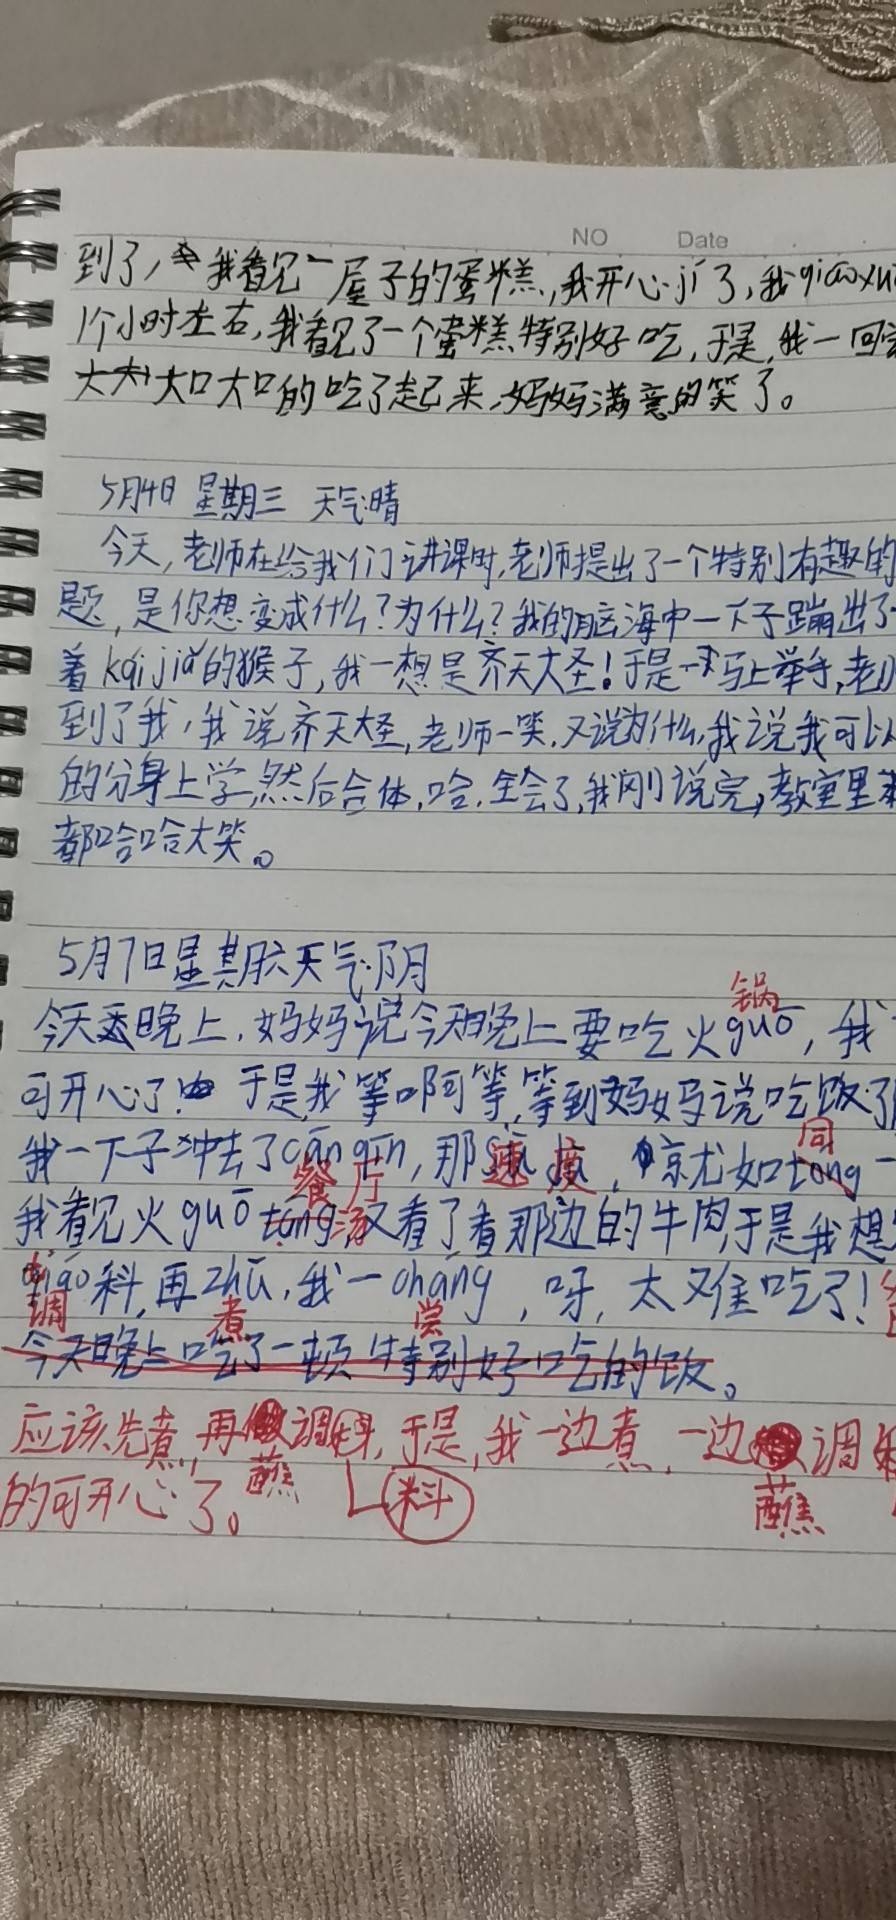 NO Date
到了，我看见一屋子的蛋糕，我开心jí了，我
1个小时左右，我看见了一个蛋糕特别好吃，于是，我一回
大口大口的吃了起来，妈妈满意的笑了。
5月4日 星期三 天气晴
今天，老师在给我们讲课时，老师提出了一个特别有趣的
题，是你想变成什么？为什么？我的脑海中一下子蹦出了
着kǎi jiǎ的猴子，我一想是齐天大圣！于是马上举手，老师
到了我，我说齐天大圣，老师一笑，又说为什么，我说我可以
的分身上学，然后合体，哈，全会了，我刚说完，教室里
都哈哈大笑。
5月7日星期六天气阴
锅
今天晚上，妈妈说今天晚上要吃火guō，我
可开心了！于是，我等啊等，等到妈妈说吃饭了
同
我一下子冲去了cāngtīn，那，就如tóng一
餐厅 速度
我看见火guō tāng，又看了看那边的牛肉，于是我想
汤
tiáo料，再zhǔ，我一cháng，呀，太难吃了！
调 煮 尝
今天晚上吃了一顿特别好吃的饭。
应该先煮，再调料，于是，我一边煮，一边调
蘸 蘸
的可开心了。料